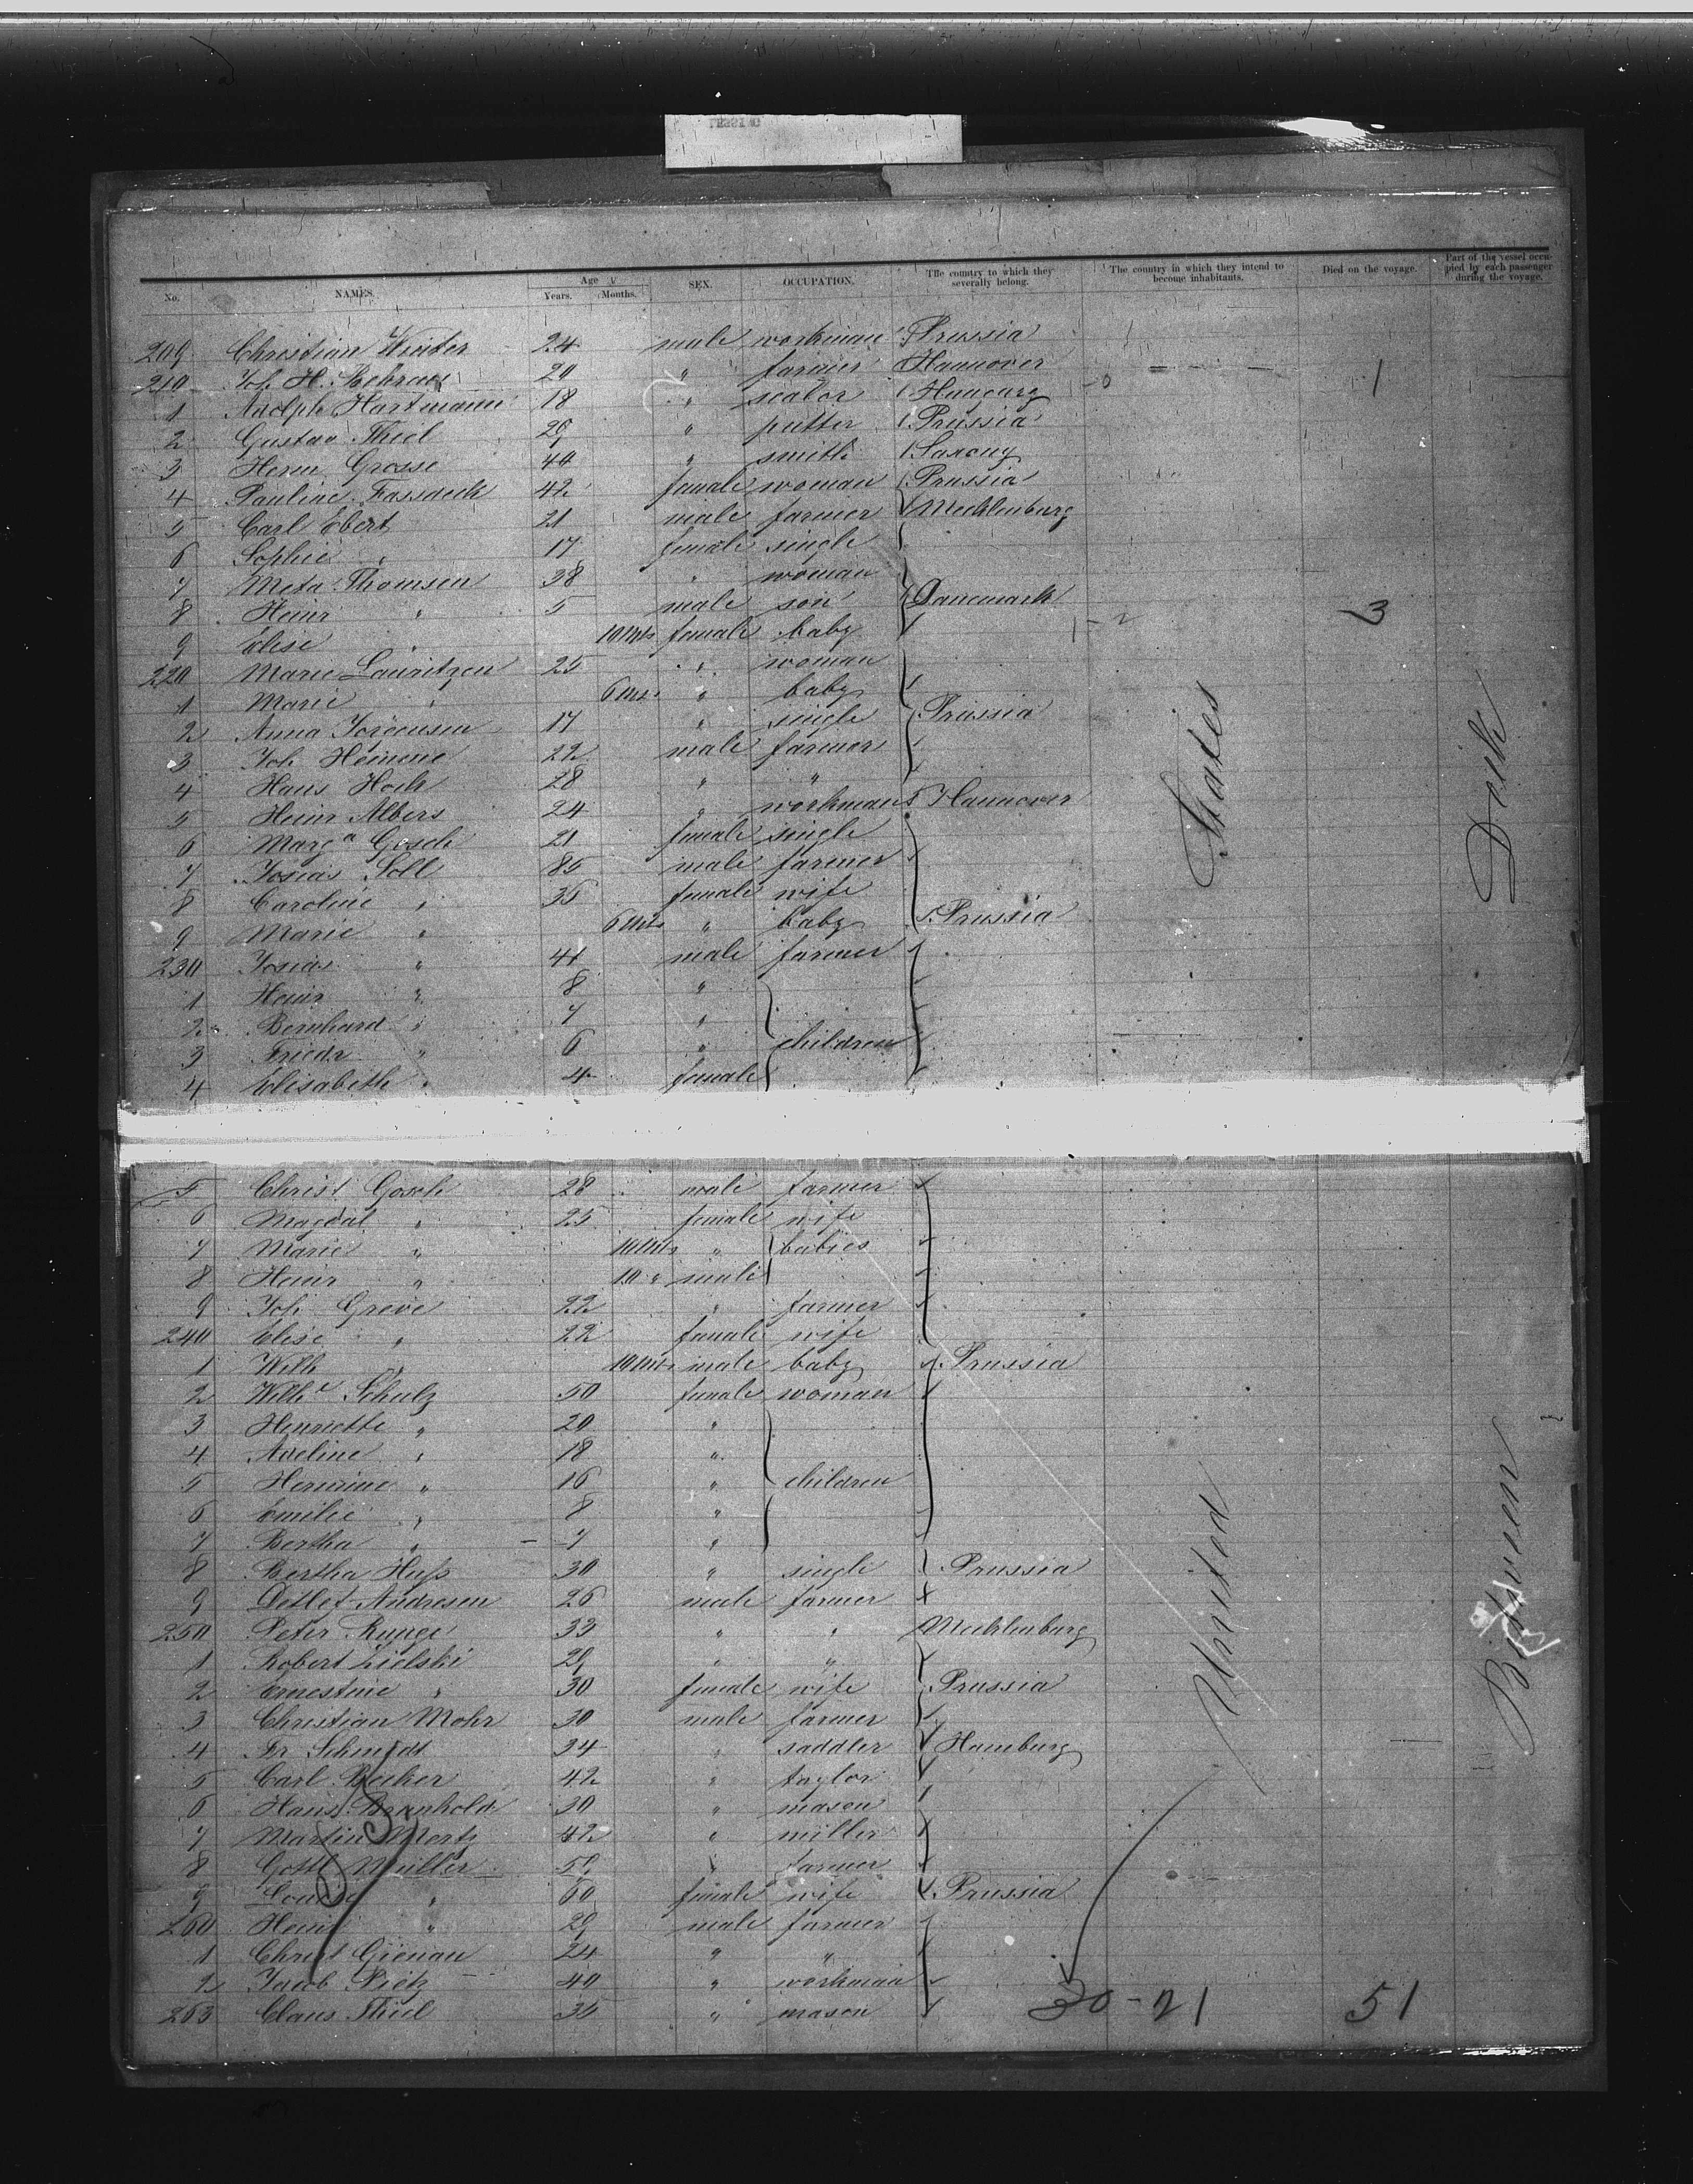 No. NAMES. Age Years. Months. SEX. OCCUPATION. The country to which they severally belong. The country in which they intend to become inhabitants. Died on the voyage. Part of the vessel occupied by each passenger during the voyage.
209 Christian Winter 24 male workman Prussia
210 Joh H. Behrens 20 " farmer Hannover 1
1 Adolph Hartmann 18 " Hungary
2 Gustav Thiel 29 " putter Prussia
3 Herm Grosse 40 " smith Saxony
4 Pauline Fassdeck 42 female woman Prussia
5 Carl Ebert 21 male farmer Mecklenburg
6 Sophie " 17 female single
7 Meta Thomsen 38 " woman
8 Heinr " 5 male son Danemark 3
9 Elise " 10 Mts female baby
220 Marie Lauritzen 25 " woman
1 Marie " 6 Mts " baby
2 Anna Jörgensen 17 " single Prussia
3 Joh Hemme 22 male farmer
4 Hans Hoch 28 " "
5 Heinr Albers 24 " workman Hannover
6 Marg a Gosch 21 female single
7 Josias Soll 85 male farmer
8 Caroline " 35 female wife
9 Marie " 6 Mts " baby Prussia
230 Josias " 41 male farmer
1 Heinr " 8 "
2 Bernhard " 7 "
3 Friedr " 6 " children
4 Elisabeth " 4 female
States
Deck
5 Christ Gosch 28 male farmer
6 Magdal " 25 female wife
7 Marie " 10 Mts " babies
8 Heinr " 10 " male
9 Joh Greve 22 " farmer
240 Elise " 22 female wife
1 Wilh " 10 Mts male baby Prussia
2 Wilh e Schulz 50 female woman
3 Henriette " 20 "
4 Adeline " 18 "
5 Hermine " 16 " children
6 Emilie " 8 "
7 Bertha " 7 "
8 Bertha Huß 30 " single Prussia
9 Detlef Andresen 26 male farmer
250 Peter Runge 33 " " Mecklenburg
1 Robert Zielski 29 " "
2 Ernestine " 30 female wife Prussia
3 Christian Mohr 30 male farmer
4 Fr Schmidt 24 " saddler Hamburg
5 Carl Becker 42 " taylor
6 Hans 30 " mason
7 Martin Mertz 42 " miller
8 Gottl Müller " farmer
9 Louise " 60 female wife Prussia
260 Heinr " 29 male farmer
1 Christ Gienau 24 " "
2 Jacob Pietz 40 " workman
263 Claus Thiel 35 " mason 30-21 51
United
Between